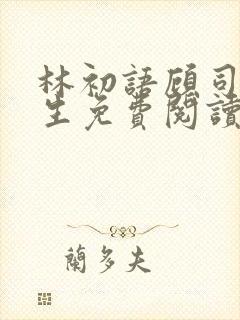 林初語顧司
生免費閱讀
蘭多夫